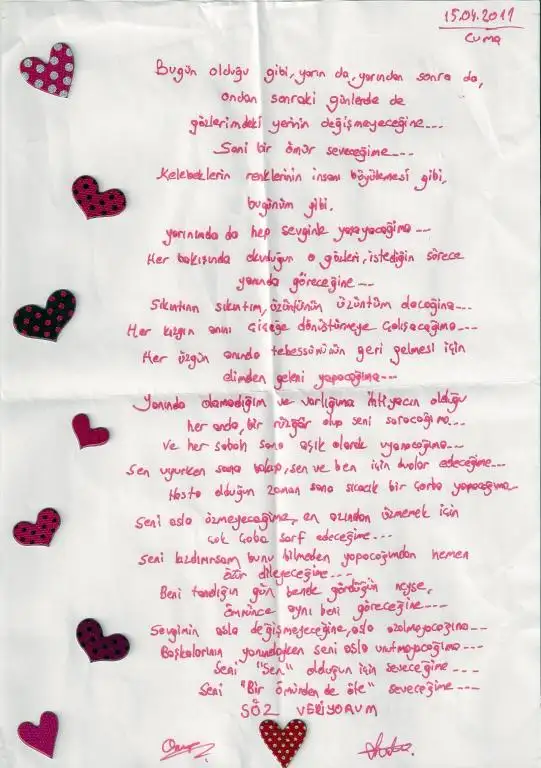 15.04.2011
Cuma
Bugün olduğu gibi, yarın da, yarından sonra da,
ondan sonraki günlerde de
gözlerimdeki yerinin değişmeyeceğine---
Seni bir ömür seveceğime---
Kelebeklerin renklerinin insanı büyülemesi gibi,
bugünüm gibi,
yarınımda da hep sevginle yaşayacağıma---
Her bakışında okuduğun o gözleri, istediğin sürece
yanında göreceğine---
Sıkıntının sıkıntım, üzüntünün üzüntüm olacağına---
Her kızgın anını çiçeğe dönüştürmeye çalışacağıma---
Her üzgün anında tebessümünün geri gelmesi için
elimden geleni yapacağıma---
Yanında olamadığım ve varlığıma ihtiyacın olduğu
her anda, bir rüzgâr olup seni saracağıma---
Ve her sabah sana aşık olarak uyanacağıma---
Sen uyurken sana bakıp, sen ve ben için dualar edeceğime---
Hasta olduğun zaman sana sıcacık bir çorba yapacağıma
Seni asla üzmeyeceğime, en azından üzmemek için
çok çaba sarf edeceğime---
Seni kızdırırsam bunu bilmeden yapacağımdan hemen
özür dileyeceğime---
Beni tanıdığın gün bende gördüğün neyse,
ömrünce aynı beni göreceğine---
Sevgimin asla değişmeyeceğine, asla azalmayacağına---
Başkalarının yanındayken seni asla unutmayacağıma---
Seni "Sen" olduğun için seveceğime---
Seni "Bir ömürden de öte" seveceğime---
SÖZ VERİYORUM